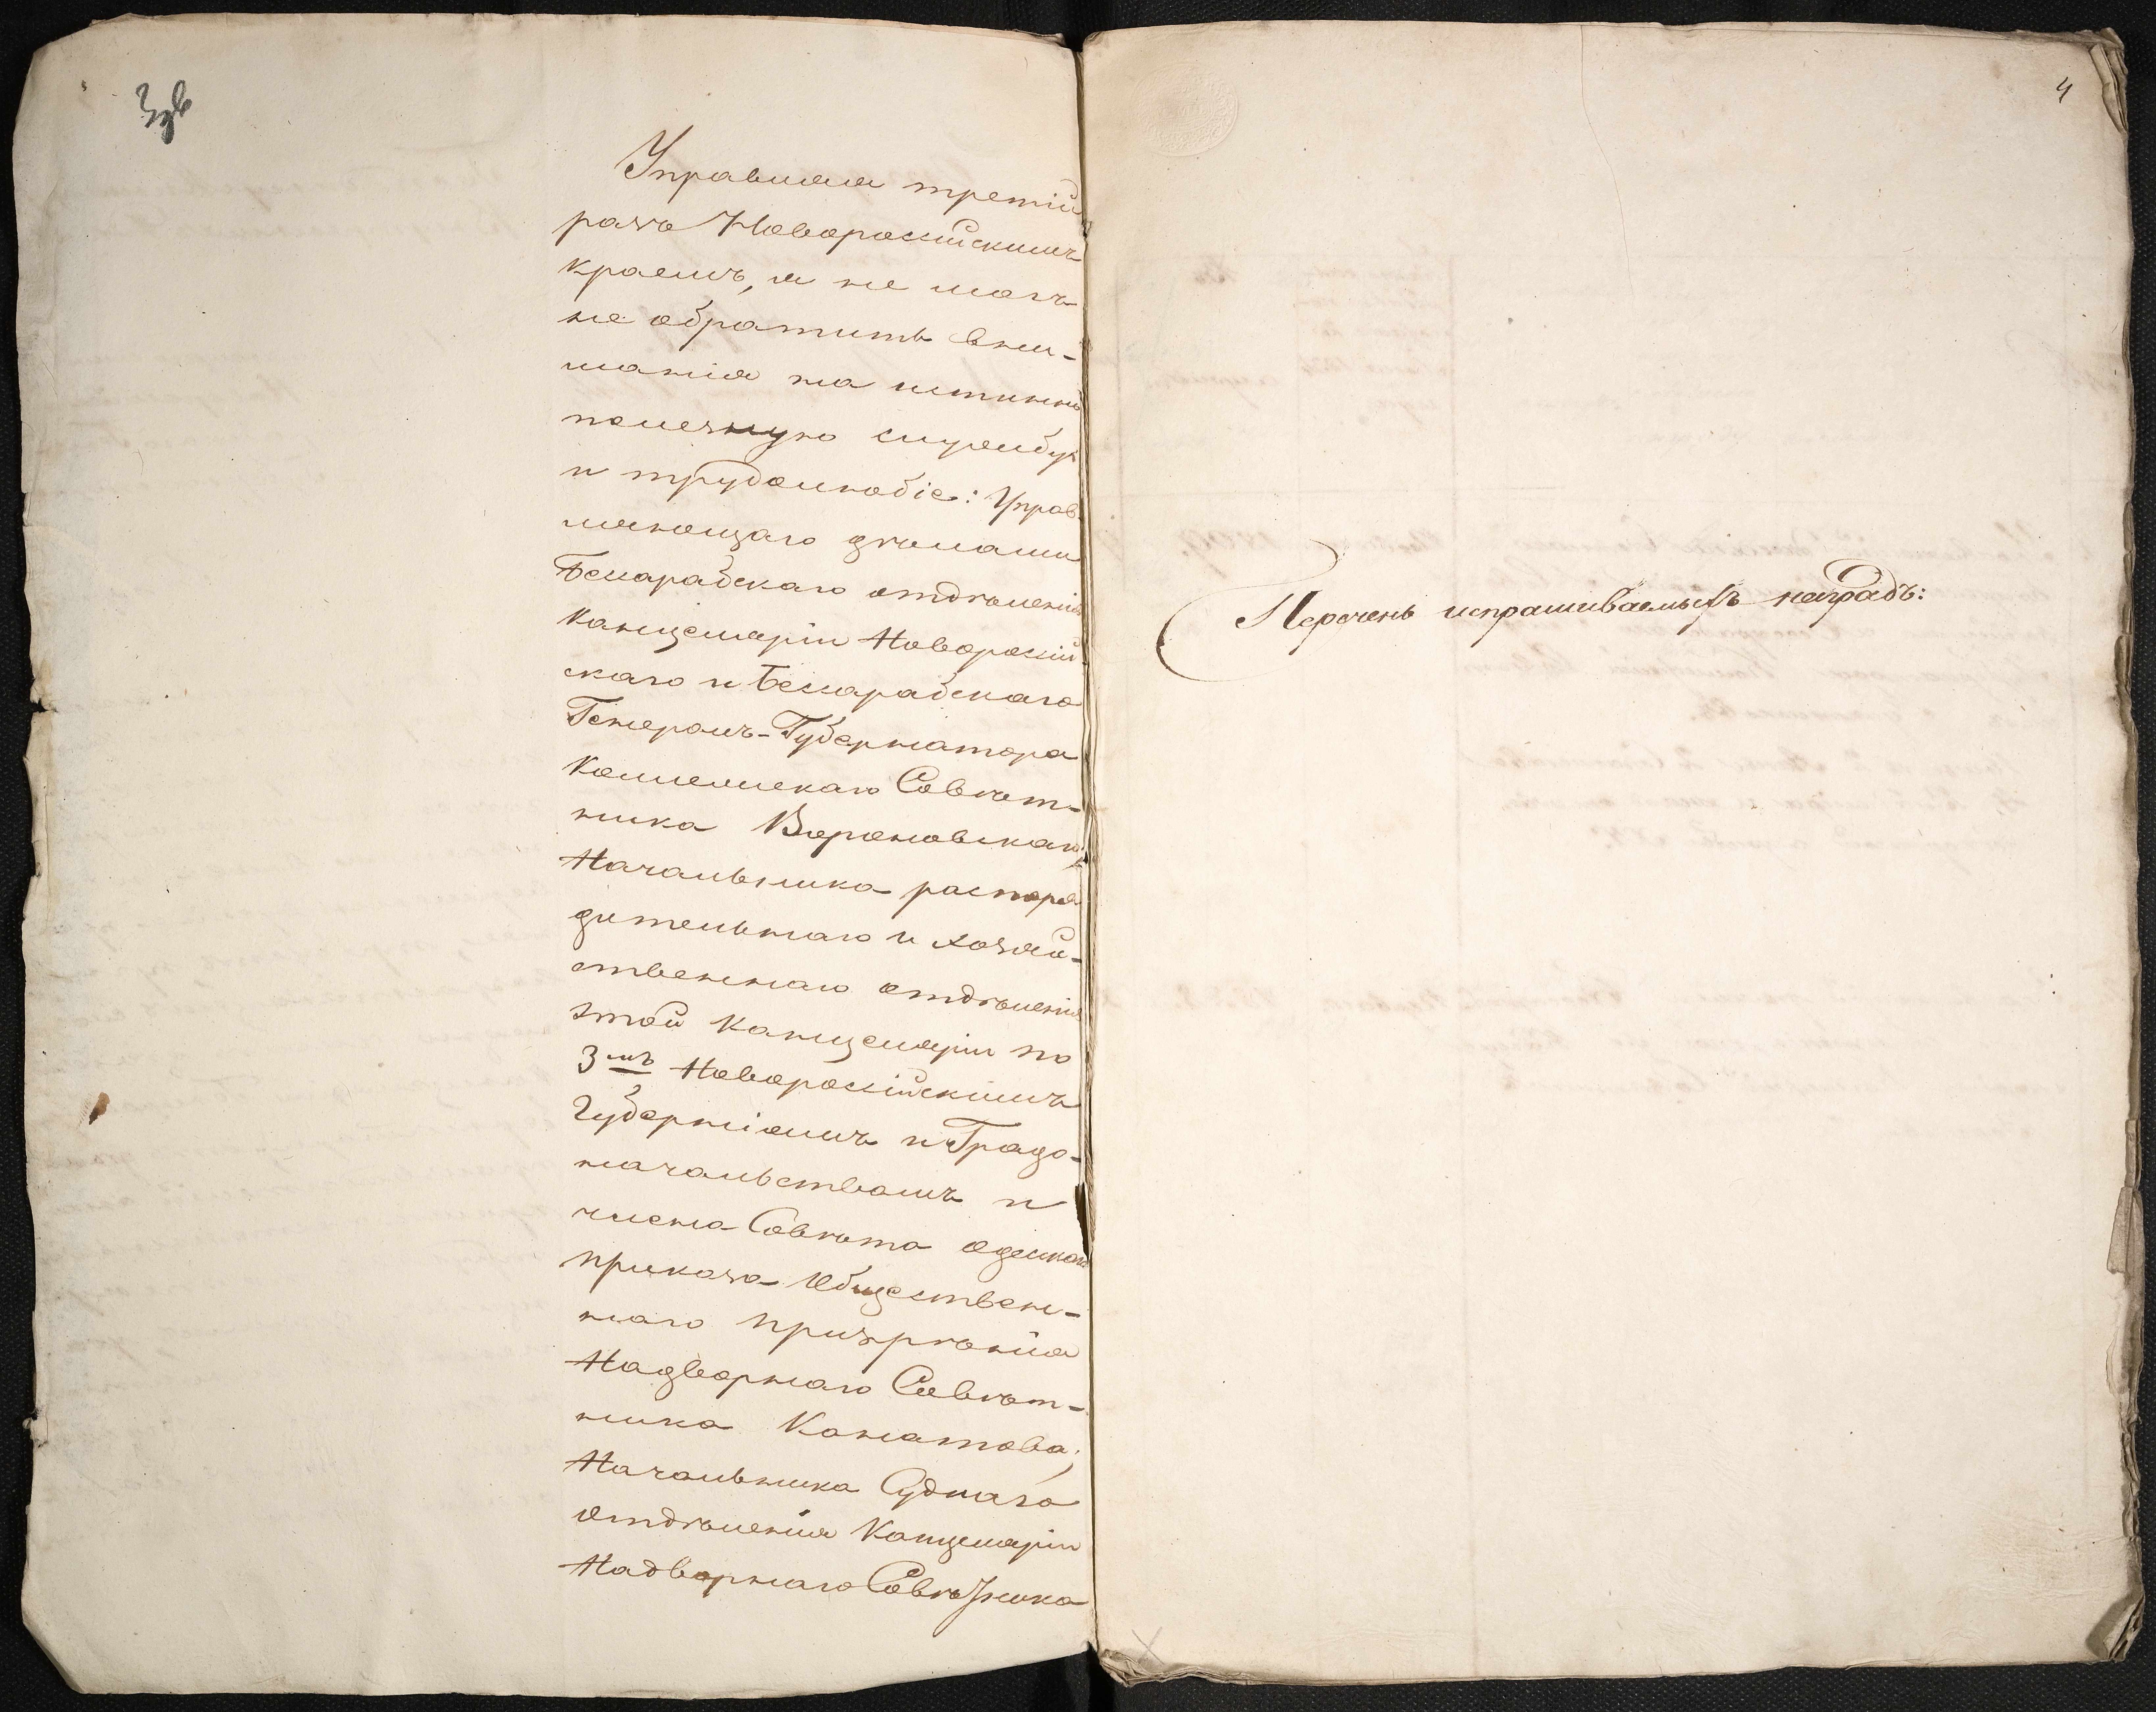 Зоб
Управляя третій
разъ Новороссійскимъ
краемъ, я не могъ
не обратить вни-
манія на истинно
полезную службу
и трудолюбіе: Управ-
ляющаго делами
Бессарабскаго отделенія
Канцеляріи Новороссій-
скаго и Бессарабскаго
Генералъ-Губернатора
Коллежскаго Совѣт-
ника Вороновскаго,
Начальника распоря
дительнаго и хозяй-
ственнаго отдѣленія
этой Канцеляріи по
3мъ Новороссійскимъ
Губерніямъ и Градо-
начальствамъ и
члена Совѣта Одесскаго
приказа Обществен-
наго призрѣнія
Надворнаго Совѣт-
ника Канатова;
Начальника Суднаго
Отдѣленія Канцеляріи
Надворнаго Совѣтника
4
Перечень испрашиваемыхъ наградъ: